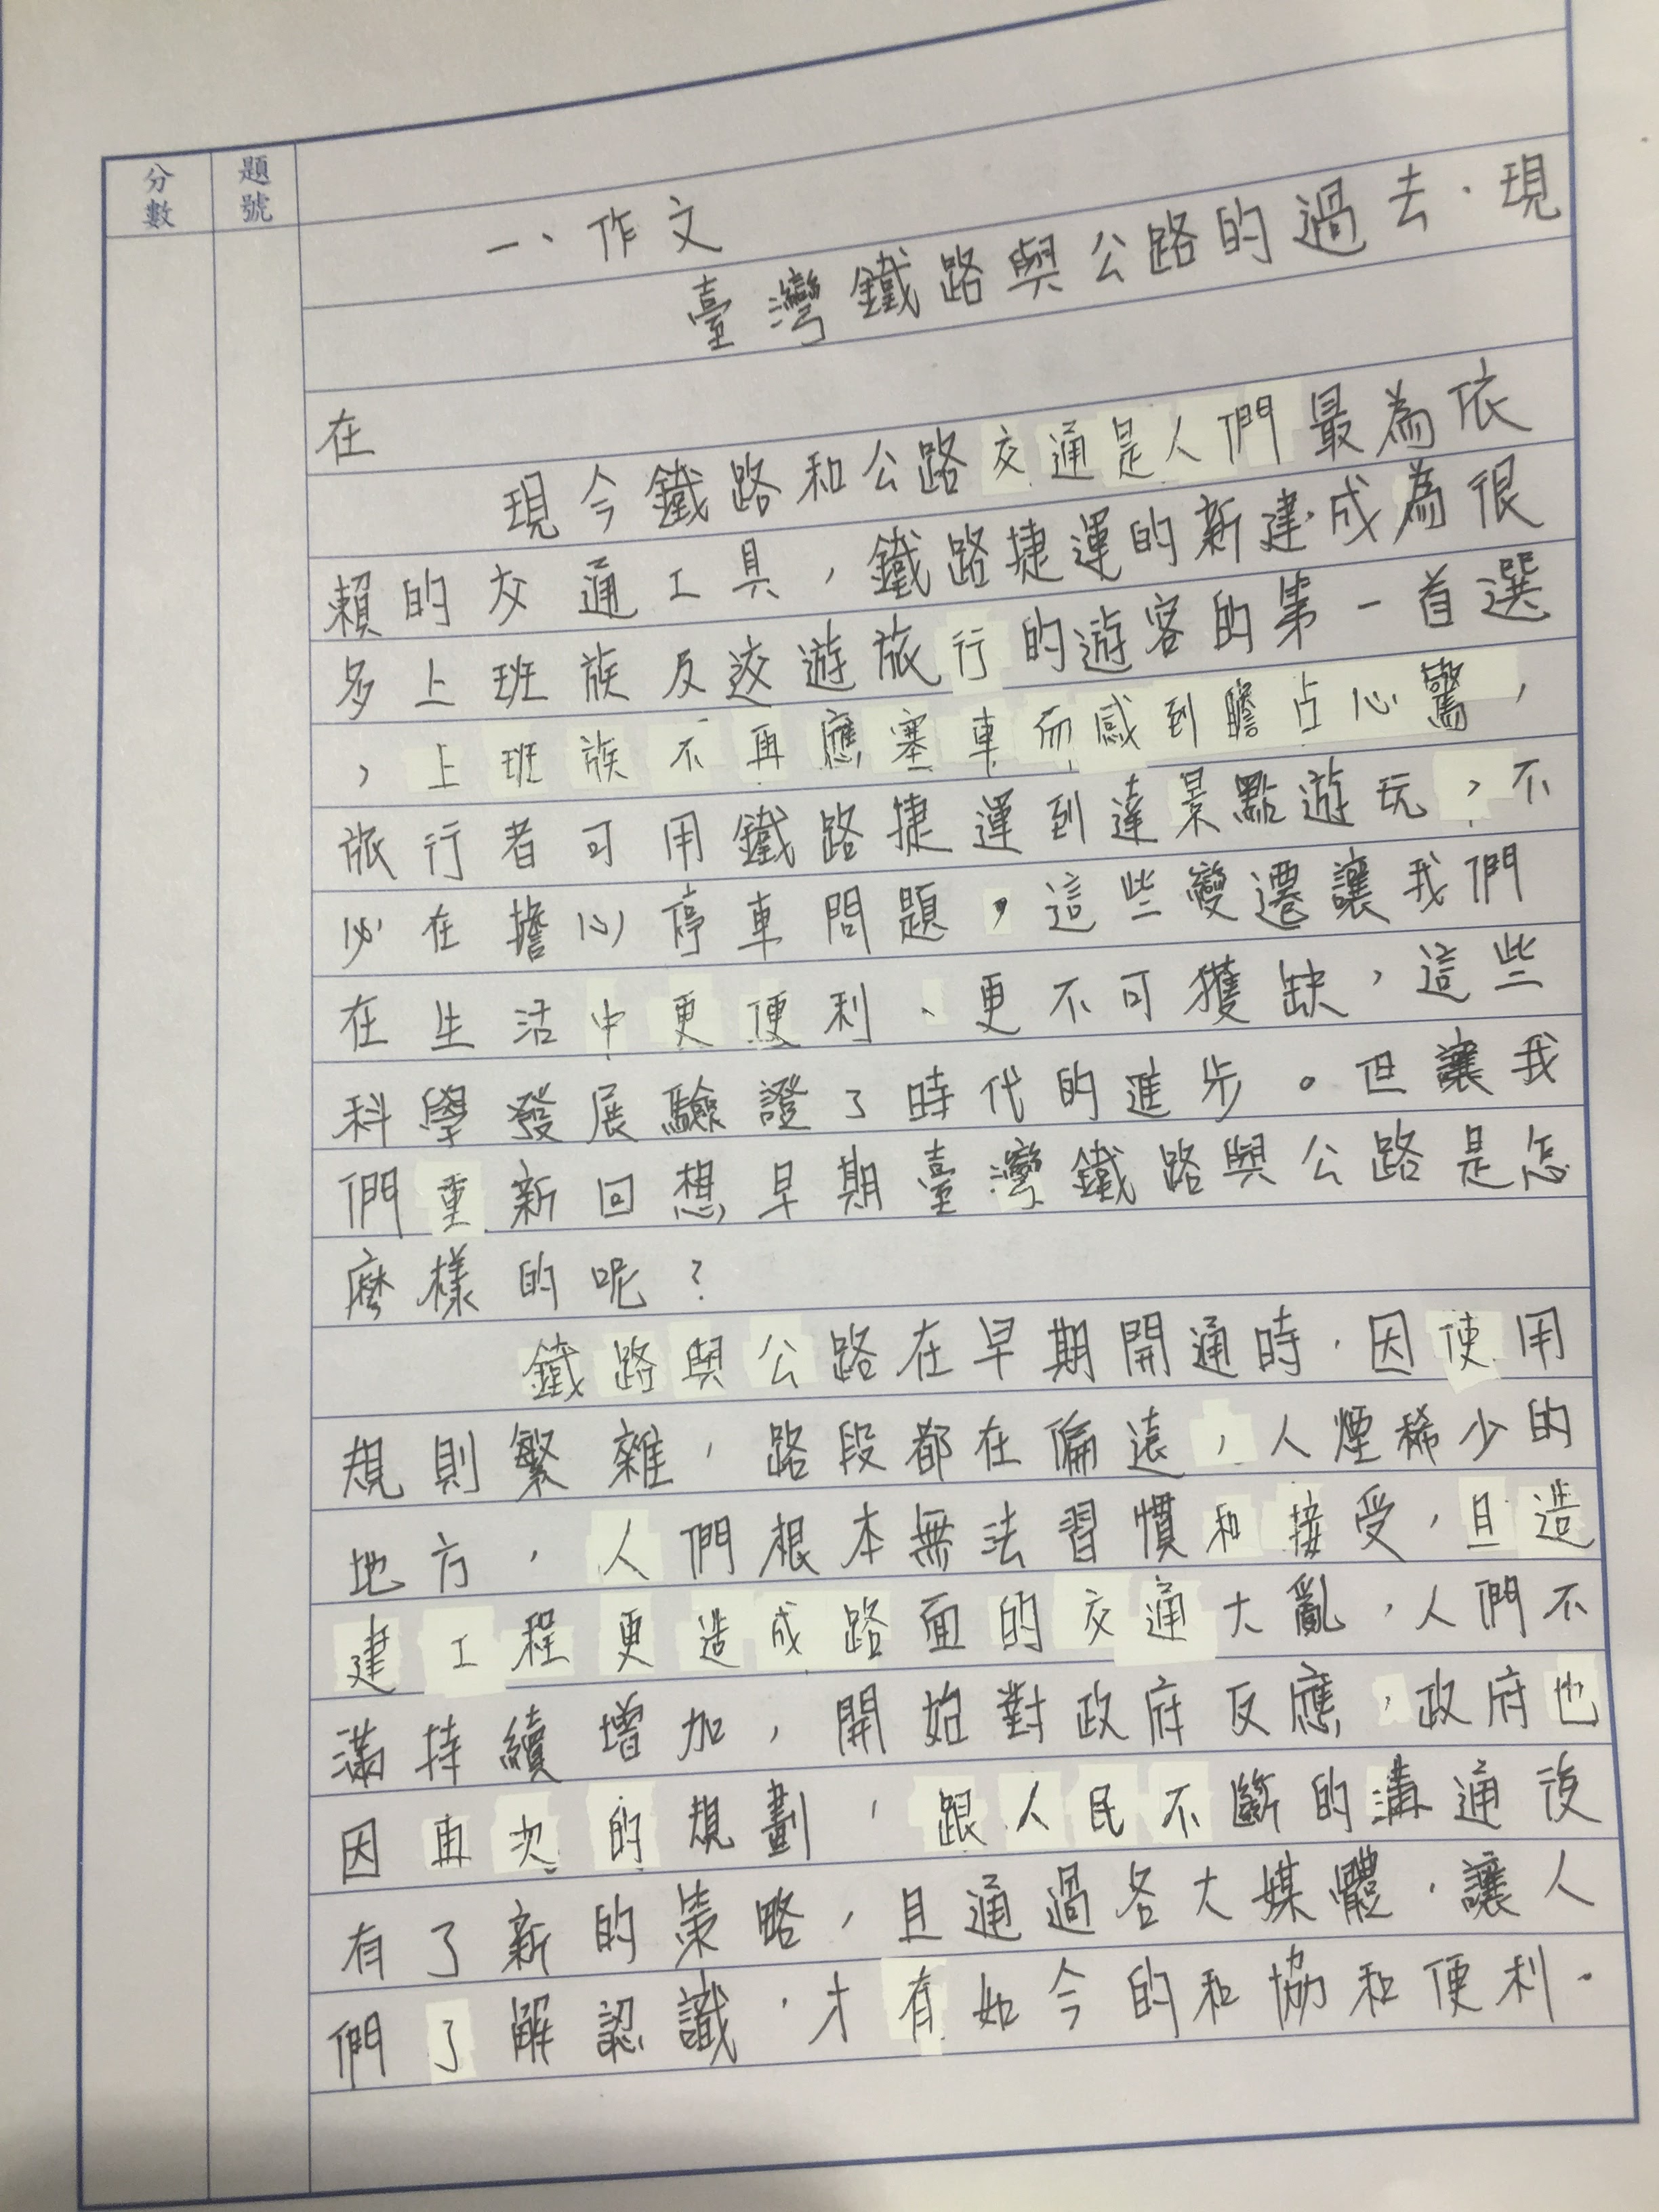 分數
題號
一、作文
臺灣鐵路與公路的過去、現
在
現今鐵路和公路交通是人們最為依
賴的交通工具，鐵路捷運的新建成為很
多上班族及遊旅行的遊客的第一首選
，上班族不再應塞車而感到瞻占心驚，
旅行者可用鐵路捷運到達景點遊玩，不
必在擔心停車問題，這些變遷讓我們
在生活中更便利、更不可獲缺，這些
科學發展驗證了時代的進步。但讓我
們重新回想早期臺灣鐵路與公路是怎
麼樣的呢？
鐵路與公路在早期開通時，因使用
規則繁雜，路段都在偏遠，人煙稀少的
地方，人們根本無法習慣和接受，且造
建工程更造成路面的交通大亂，人們不
滿持續增加，開始對政府反應，政府也
因再次的規劃，跟人民不斷的溝通後
有了新的策略，且通過各大媒體，讓人
們了解認識，才有如今的和協和便利。